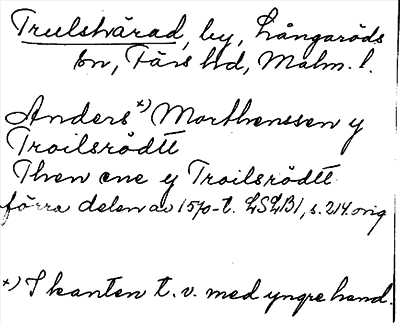 Trulshärad, by, Långaröds
sn, Färs hd, Malm. l.
Anders *) Morthenssen y
Troilsrödtt
Then ene y Troilsrödtt
förra delen av 1570-t. LSLB1, s. 214. orig
*) I kanten t. v. med yngre hand.